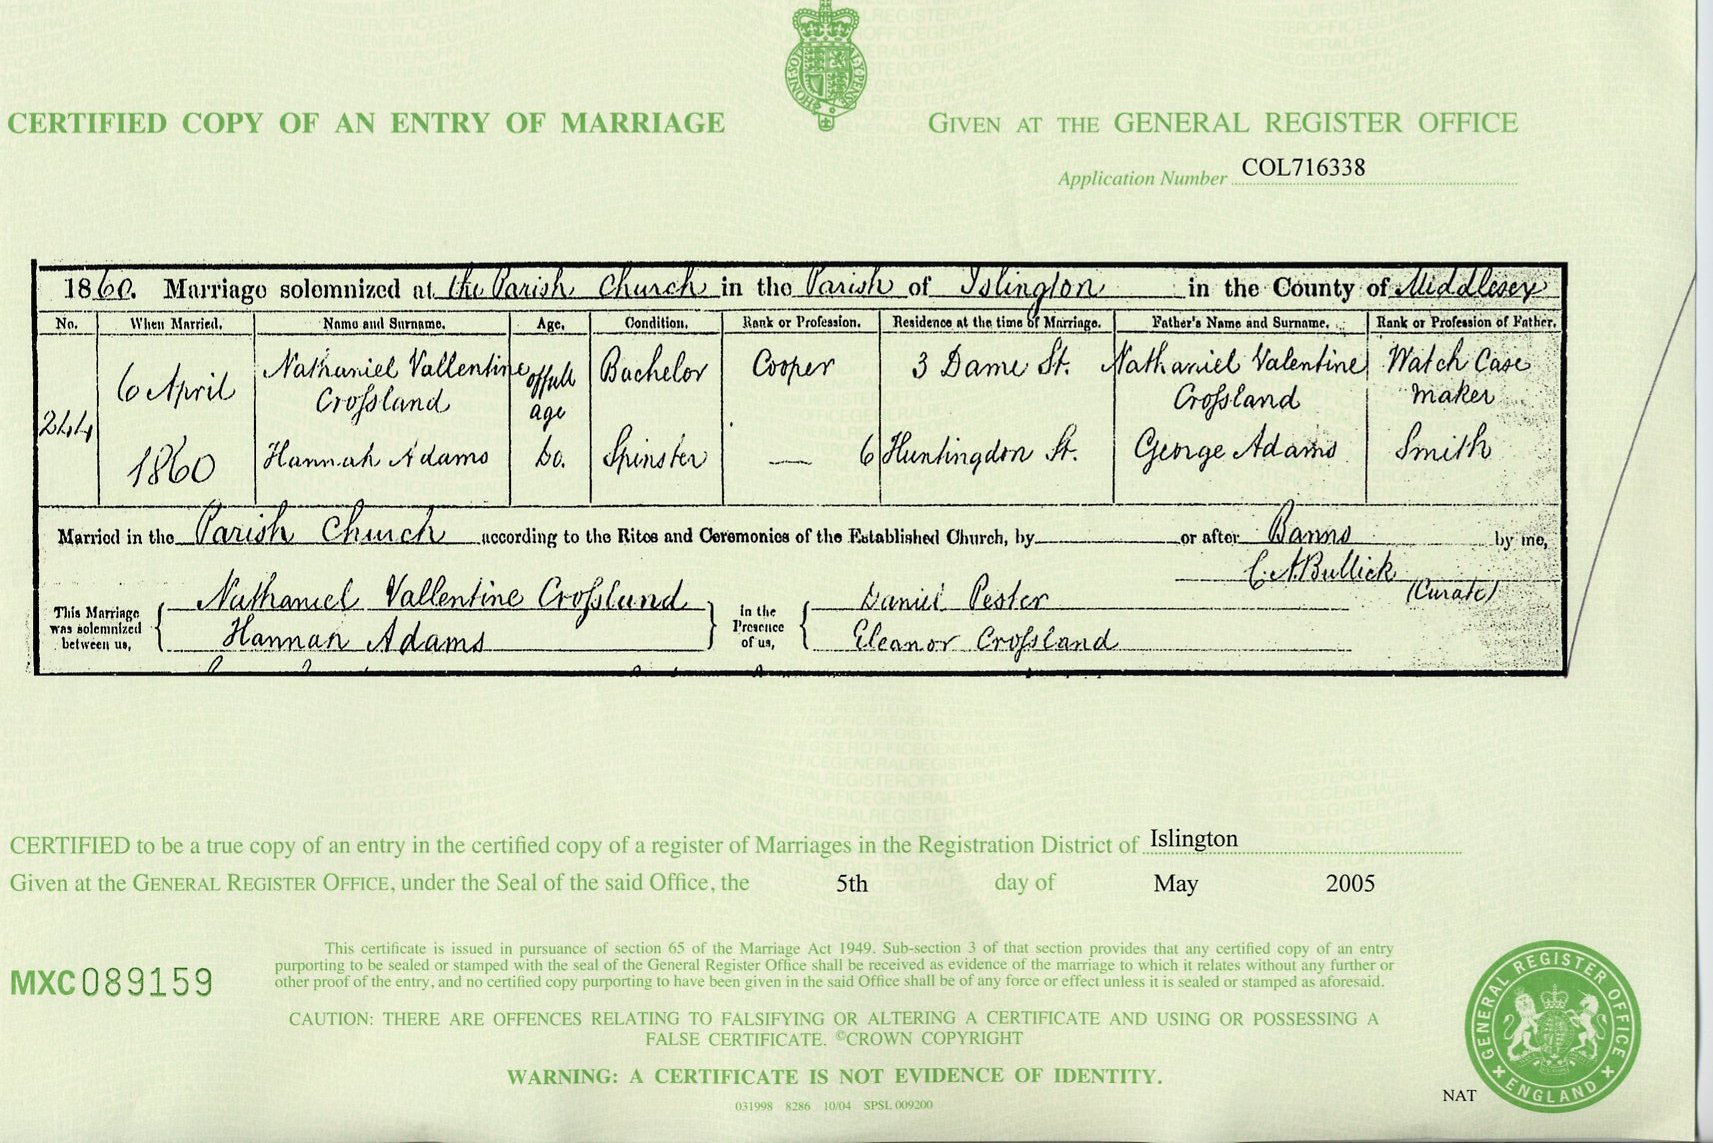 CERTIFIED COPY OF AN ENTRY OF MARRIAGE
GIVEN AT THE GENERAL REGISTER OFFICE
Application Number COL716338
1860. Marriage solemnized at the Parish Church in the Parish of Islington in the County of Middlesex
No. When Married. Name and Surname. Age. Condition. Rank or Profession. Residence at the time of Marriage. Father's Name and Surname. Rank or Profession of Father.
244 6 April 1860
Nathaniel Vallentine Crossland of full age Bachelor Cooper 3 Dame St. Nathaniel Valentine Crossland Watch Case maker
Hannah Adams Do. Spinster — 6 Huntingdon St. George Adams Smith
Married in the Parish Church according to the Rites and Ceremonies of the Established Church, by or after Banns by me,
C. A. Bullick
(Curate)
This Marriage was solemnized between us, Nathaniel Vallentine Crossland
Hannah Adams
In the Presence of us, Daniel Pester
Eleanor Crossland
CERTIFIED to be a true copy of an entry in the certified copy of a register of Marriages in the Registration District of Islington
Given at the GENERAL REGISTER OFFICE, under the Seal of the said Office, the 5th day of May 2005
MXC 089159
This certificate is issued in pursuance of section 65 of the Marriage Act 1949. Sub-section 3 of that section provides that any certified copy of an entry
purporting to be sealed or stamped with the seal of the General Register Office shall be received as evidence of the marriage to which it relates without any further or
other proof of the entry, and no certified copy purporting to have been given in the said Office shall be of any force or effect unless it is sealed or stamped as aforesaid.
CAUTION: THERE ARE OFFENCES RELATING TO FALSIFYING OR ALTERING A CERTIFICATE AND USING OR POSSESSING A
FALSE CERTIFICATE. ©CROWN COPYRIGHT
WARNING: A CERTIFICATE IS NOT EVIDENCE OF IDENTITY.
031998 8286 10/04 SPSL 009200
NAT
GENERAL REGISTER OFFICE
ENGLAND